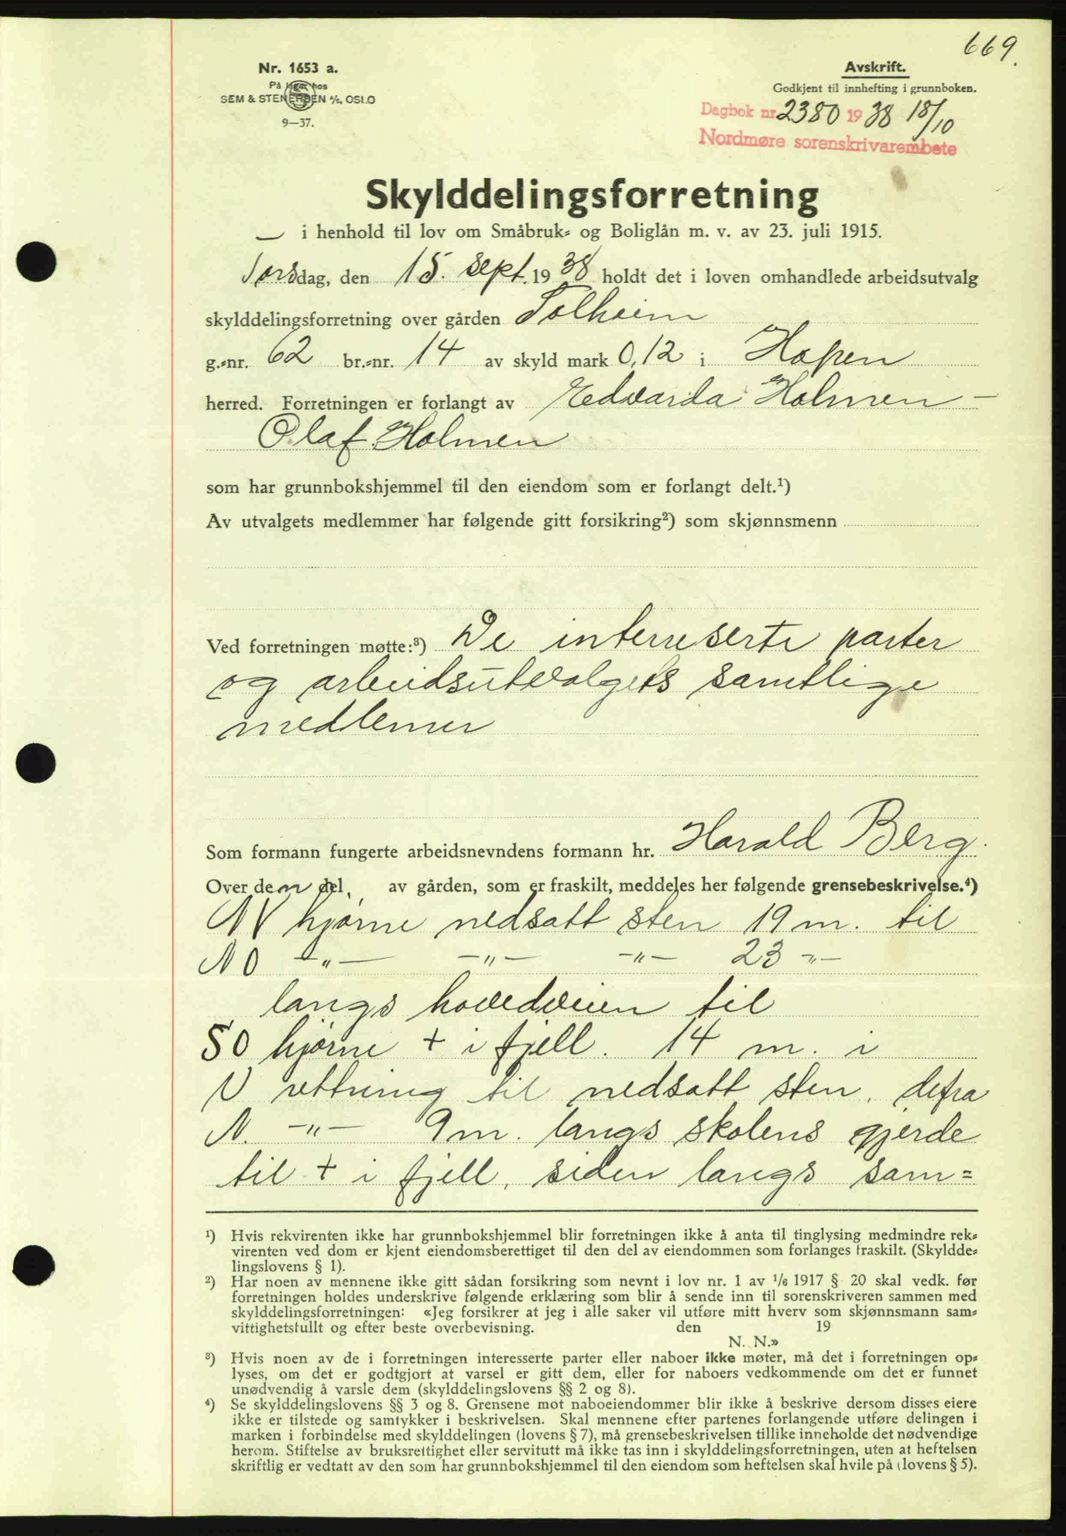 669.
Nr. 1653 a.
På lager hos
SEM & STENERSEN A/S, OSLO
9—37.
Avskrift.
Godkjent til innhefting i grunnboken.
Dagbok nr. 2380 1938 18/10
Nordmøre sorenskrivarembete
Skylddelingsforretning
i henhold til lov om Småbruk- og Boliglån m. v. av 23. juli 1915.
Torsdag, den 15. sept. 1938 holdt det i loven omhandlede arbeidsutvalg
skylddelingsforretning over gården Solheim
g.-nr. 62 br.-nr. 14 av skyld mark 0,12 i Hopen
herred. Forretningen er forlangt av Edvarda Holmen –
Olaf Holmen
som har grunnbokshjemmel til den eiendom som er forlangt delt.¹)
Av utvalgets medlemmer har følgende gitt forsikring²) som skjønnsmenn
Ved forretningen møtte:³) De interreserte parter
og arbeidsutvalgets samtlige
medlemer
Som formann fungerte arbeidsnevndens formann hr. Harald Berg.
Over den del av gården, som er fraskilt, meddeles her følgende grensebeskrivelse.⁴)
NV hjørne nedsatt sten 19 m. til
NO —"— —"— —"— 23 —"—
langs hovedveien til
SO hjørne + i fjell. 14 m. i
V rettning til nedsatt sten, defra
N. —"— 9 m. langs skolens gjerde
til + i fjell, siden langs sam=
¹) Hvis rekvirenten ikke har grunnbokshjemmel blir forretningen ikke å anta til tinglysing medmindre rek-
virenten ved dom er kjent eiendomsberettiget til den del av eiendommen som forlanges fraskilt. (Skyldde-
lingslovens § 1).
²) Har noen av mennene ikke gitt sådan forsikring som nevnt i lov nr. 1 av 1/6 1917 § 20 skal vedk. før
forretningen holdes underskrive følgende erklæring som blir å sende inn til sorenskriveren sammen med
skylddelingsforretningen: «Jeg forsikrer at jeg i alle saker vil utføre mitt hverv som skjønnsmann sam-
vittighetsfullt og efter beste overbevisning. den 19
N. N.»
³) Hvis noen av de i forretningen interesserte parter eller naboer ikke møter, må det i forretningen op-
lyses, om det er godtgjort at varsel er gitt dem, eller for naboers vedkommende om det er funnet
unødvendig å varsle dem (skylddelingslovens §§ 2 og 8).
⁴) Se skylddelingslovens §§ 3 og 8. Grensene mot naboeiendommer blir ikke å beskrive dersom disses eiere
ikke er tilstede og samtykker i beskrivelsen. Skal mennene efter partenes forlangende utføre delingen i
marken i forbindelse med skylddelingen (lovens § 7), må grensebeskrivelsen tillike inneholde det nødvendige
herom. Stiftelse av bruksrettighet eller servitutt må ikke tas inn i skylddelingsforretningen, uten at heftelsen
skriftlig er vedtatt av den som har grunnbokshjemmel til den eiendom som heftelsen skal hvile på (lovens § 5).